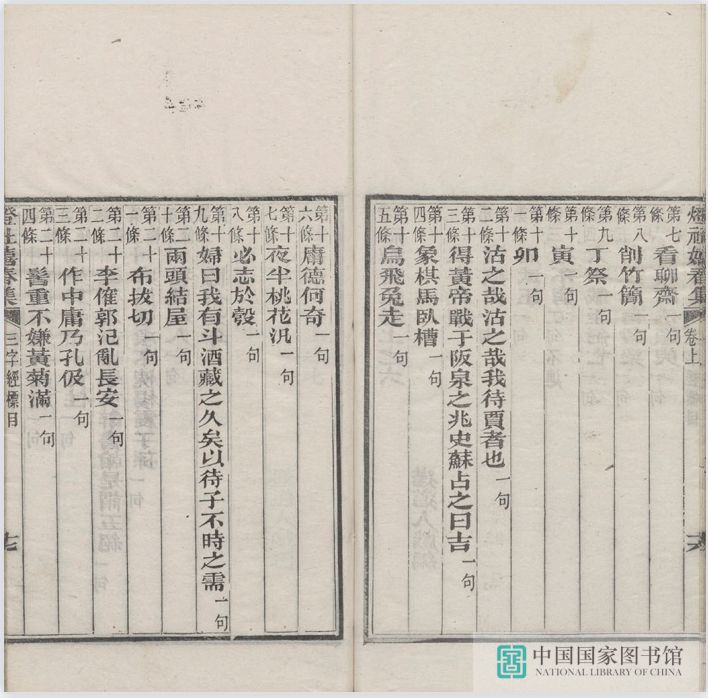 燈社嬉春集 卷上
第七條 看聊齋 一句
第八條 削竹簡 一句
第九條 丁祭 一句
第十條 寅 一句
第十一條 卯 一句
第十二條 沽之哉沽之哉我待賈者也 一句
第十三條 得黃帝戰于阪泉之兆史蘇占之曰吉 一句
第十四條 象棋馬臥槽 一句
第十五條 烏飛兔走 一句
第十六條 庸德何奇 一句
第十七條 夜半桃花汎 一句
第十八條 必志於彀 一句
第十九條 婦曰我有斗酒藏之久矣以待子不時之需 一句
第二十條 兩頭結屋 一句
第二十一條 布拔切 一句
第二十二條 李傕郭汜亂長安 一句
第二十三條 作中庸乃孔伋 一句
第二十四條 髻重不嫌黃菊滿 一句
燈社嬉春集 三字經標目
中国国家图书馆
NATIONAL LIBRARY OF CHINA